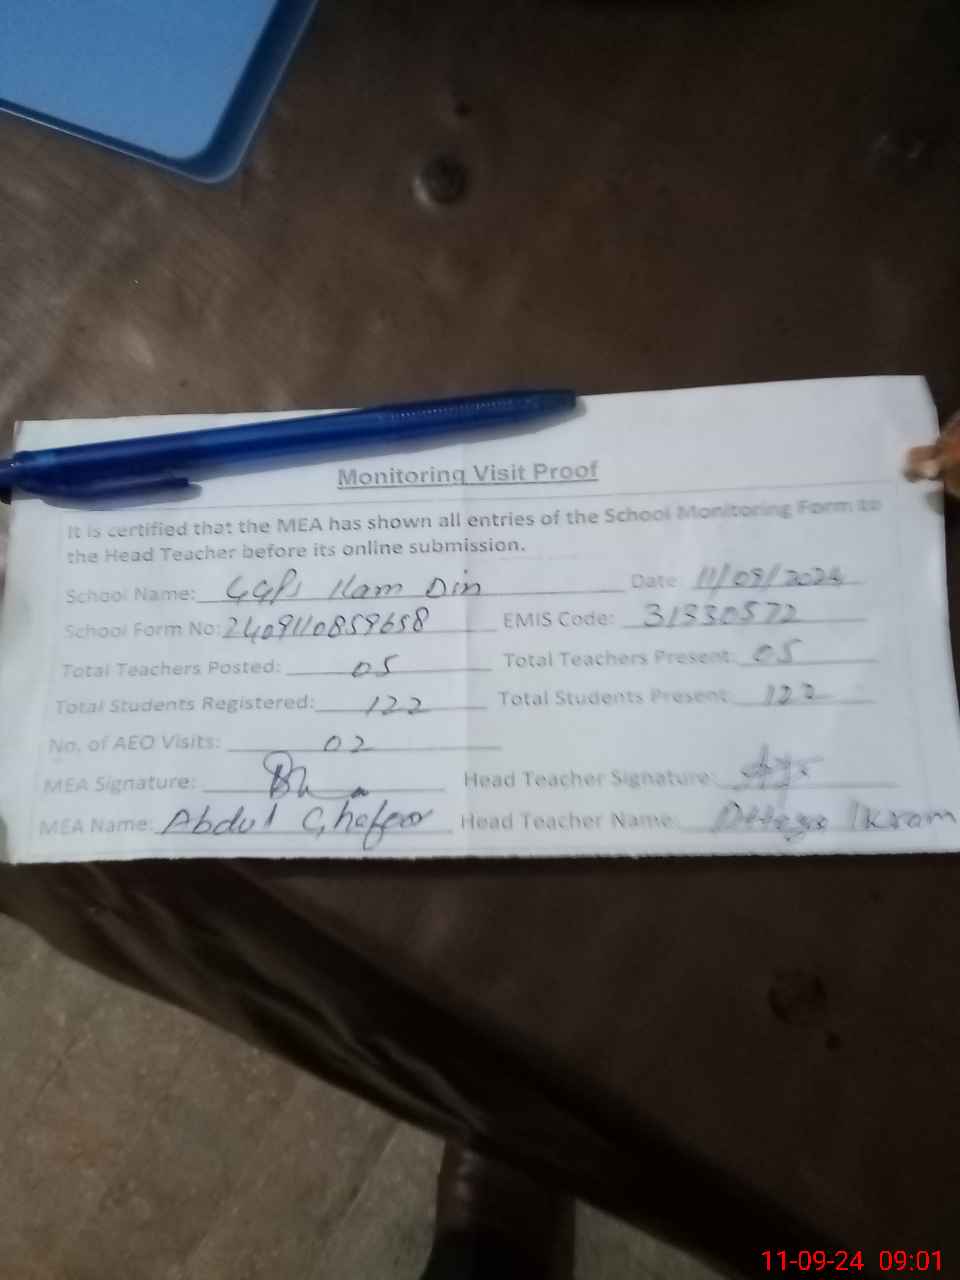 Monitoring Visit Proof
It is certified that the MEA has shown all entries of the School Monitoring Form to
the Head Teacher before its online submission.
School Name: GGPS Ilam Din Date: 11/09/2024
School Form No: 2409110859658 EMIS Code: 31330572
Total Teachers Posted: 05 Total Teachers Present: 05
Total Students Registered: 122 Total Students Present: 122
No. of AEO Visits: 02
MEA Signature: Head Teacher Signature:
MEA Name: Abdul Ghafoor Head Teacher Name: Ikram
11-09-24 09:01